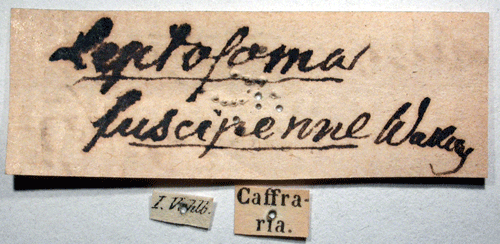 Leptosoma
fuscipenne Walleng
I. Wahlb.
Caffra-
ria.